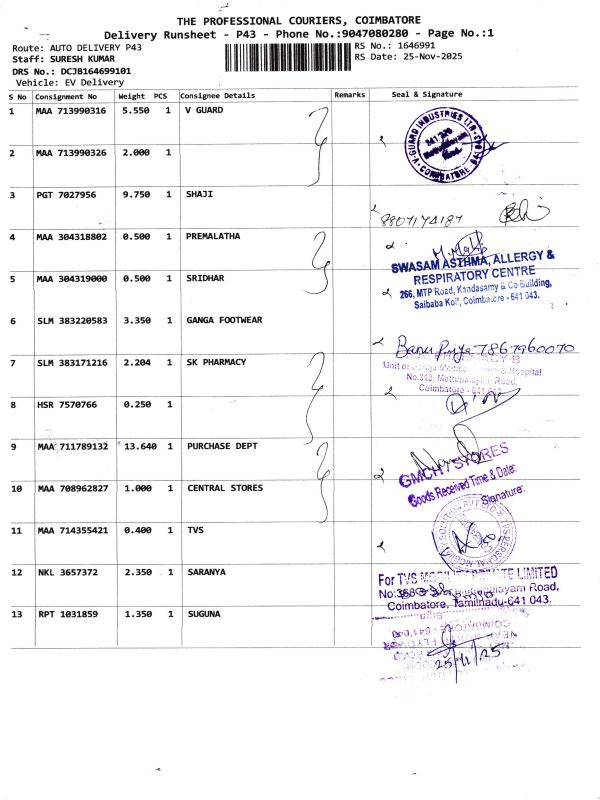 THE PROFESSIONAL COURIERS, COIMBATORE
Delivery Runsheet - P43 - Phone No.:9047080280 - Page No.:1
Route: AUTO DELIVERY P43
RS No.: 1646991
Staff: SURESH KUMAR
RS Date: 25-Nov-2025
DRS No.: DCJB164699101
Vehicle: EV Delivery
S No Consignment No Weight PCS Consignee Details Remarks Seal & Signature
1 MAA 713990316 5.550 1 V GUARD
V-GUARD INDUSTRIES LTD
COIMBATORE
2 MAA 713990326 2.000 1
3 PGT 7027956 9.750 1 SHAJI
8807174187
4 MAA 304318802 0.500 1 PREMALATHA
SWASAM ASTHMA, ALLERGY &
RESPIRATORY CENTRE
5 MAA 304319000 0.500 1 SRIDHAR
266, MTP Road, Kandasamy & Co Building,
Saibaba Koil, Coimbatore - 641 043.
6 SLM 383220583 3.350 1 GANGA FOOTWEAR
Banu Priya 7867960070
7 SLM 383171216 2.204 1 SK PHARMACY
PHARMACY B
& Hospital
No.313, Mettupalayam Road,
Coimbatore - 641
8 HSR 7570766 0.250 1
9 MAA 711789132 13.640 1 PURCHASE DEPT
GMCH / STORES
Goods Received Time & Date:
Signature:
10 MAA 708962827 1.000 1 CENTRAL STORES
11 MAA 714355421 0.400 1 TVS
12 NKL 3657372 2.350 1 SARANYA
For TVS MOBILITY PRIVATE LIMITED
Mettupalayam Road,
Coimbatore, Tamilnadu-641 043.
13 RPT 1031859 1.350 1 SUGUNA
25/11/25